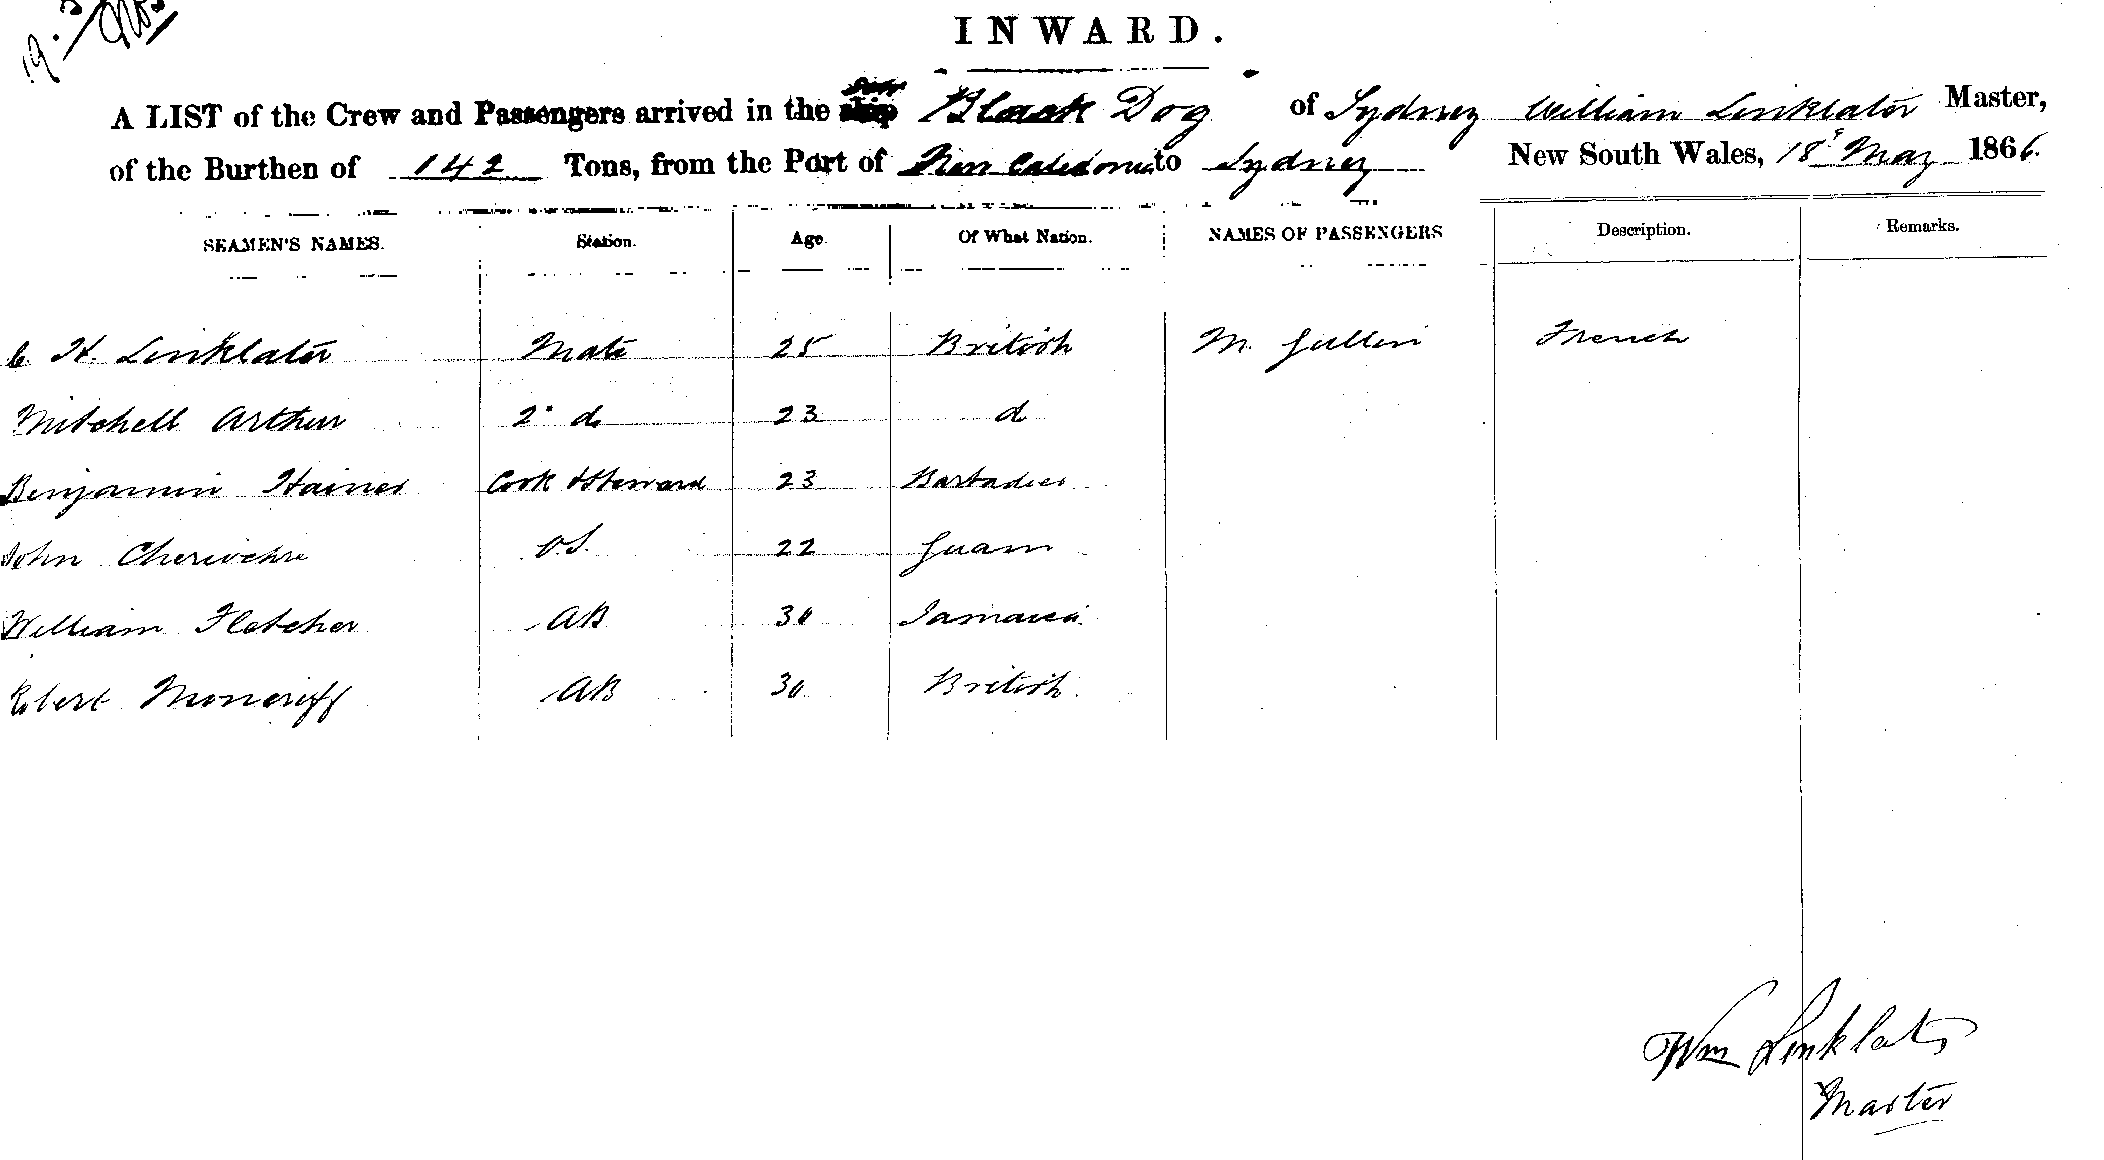 INWARD.
A LIST of the Crew and Passengers arrived in the Black Dog of Sydney William Linklater Master,
of the Burthen of 142 Tons, from the Port of New Caledonia to Sydney New South Wales, 18 May 1866.
SEAMEN'S NAMES. Station. Age. Of What Nation. NAMES OF PASSENGERS Description. Remarks.
C. H. Linklater Mate 25 British M. Gullen French
Mitchell Arthur 2 do 23 do
Benjamin Haines Cook & Steward 23 Barbadies
John O.S. 22 Guam
William Fletcher AB 30 Jamaica
Robert Moncriff AB 30 British
Wm Linklater
Master